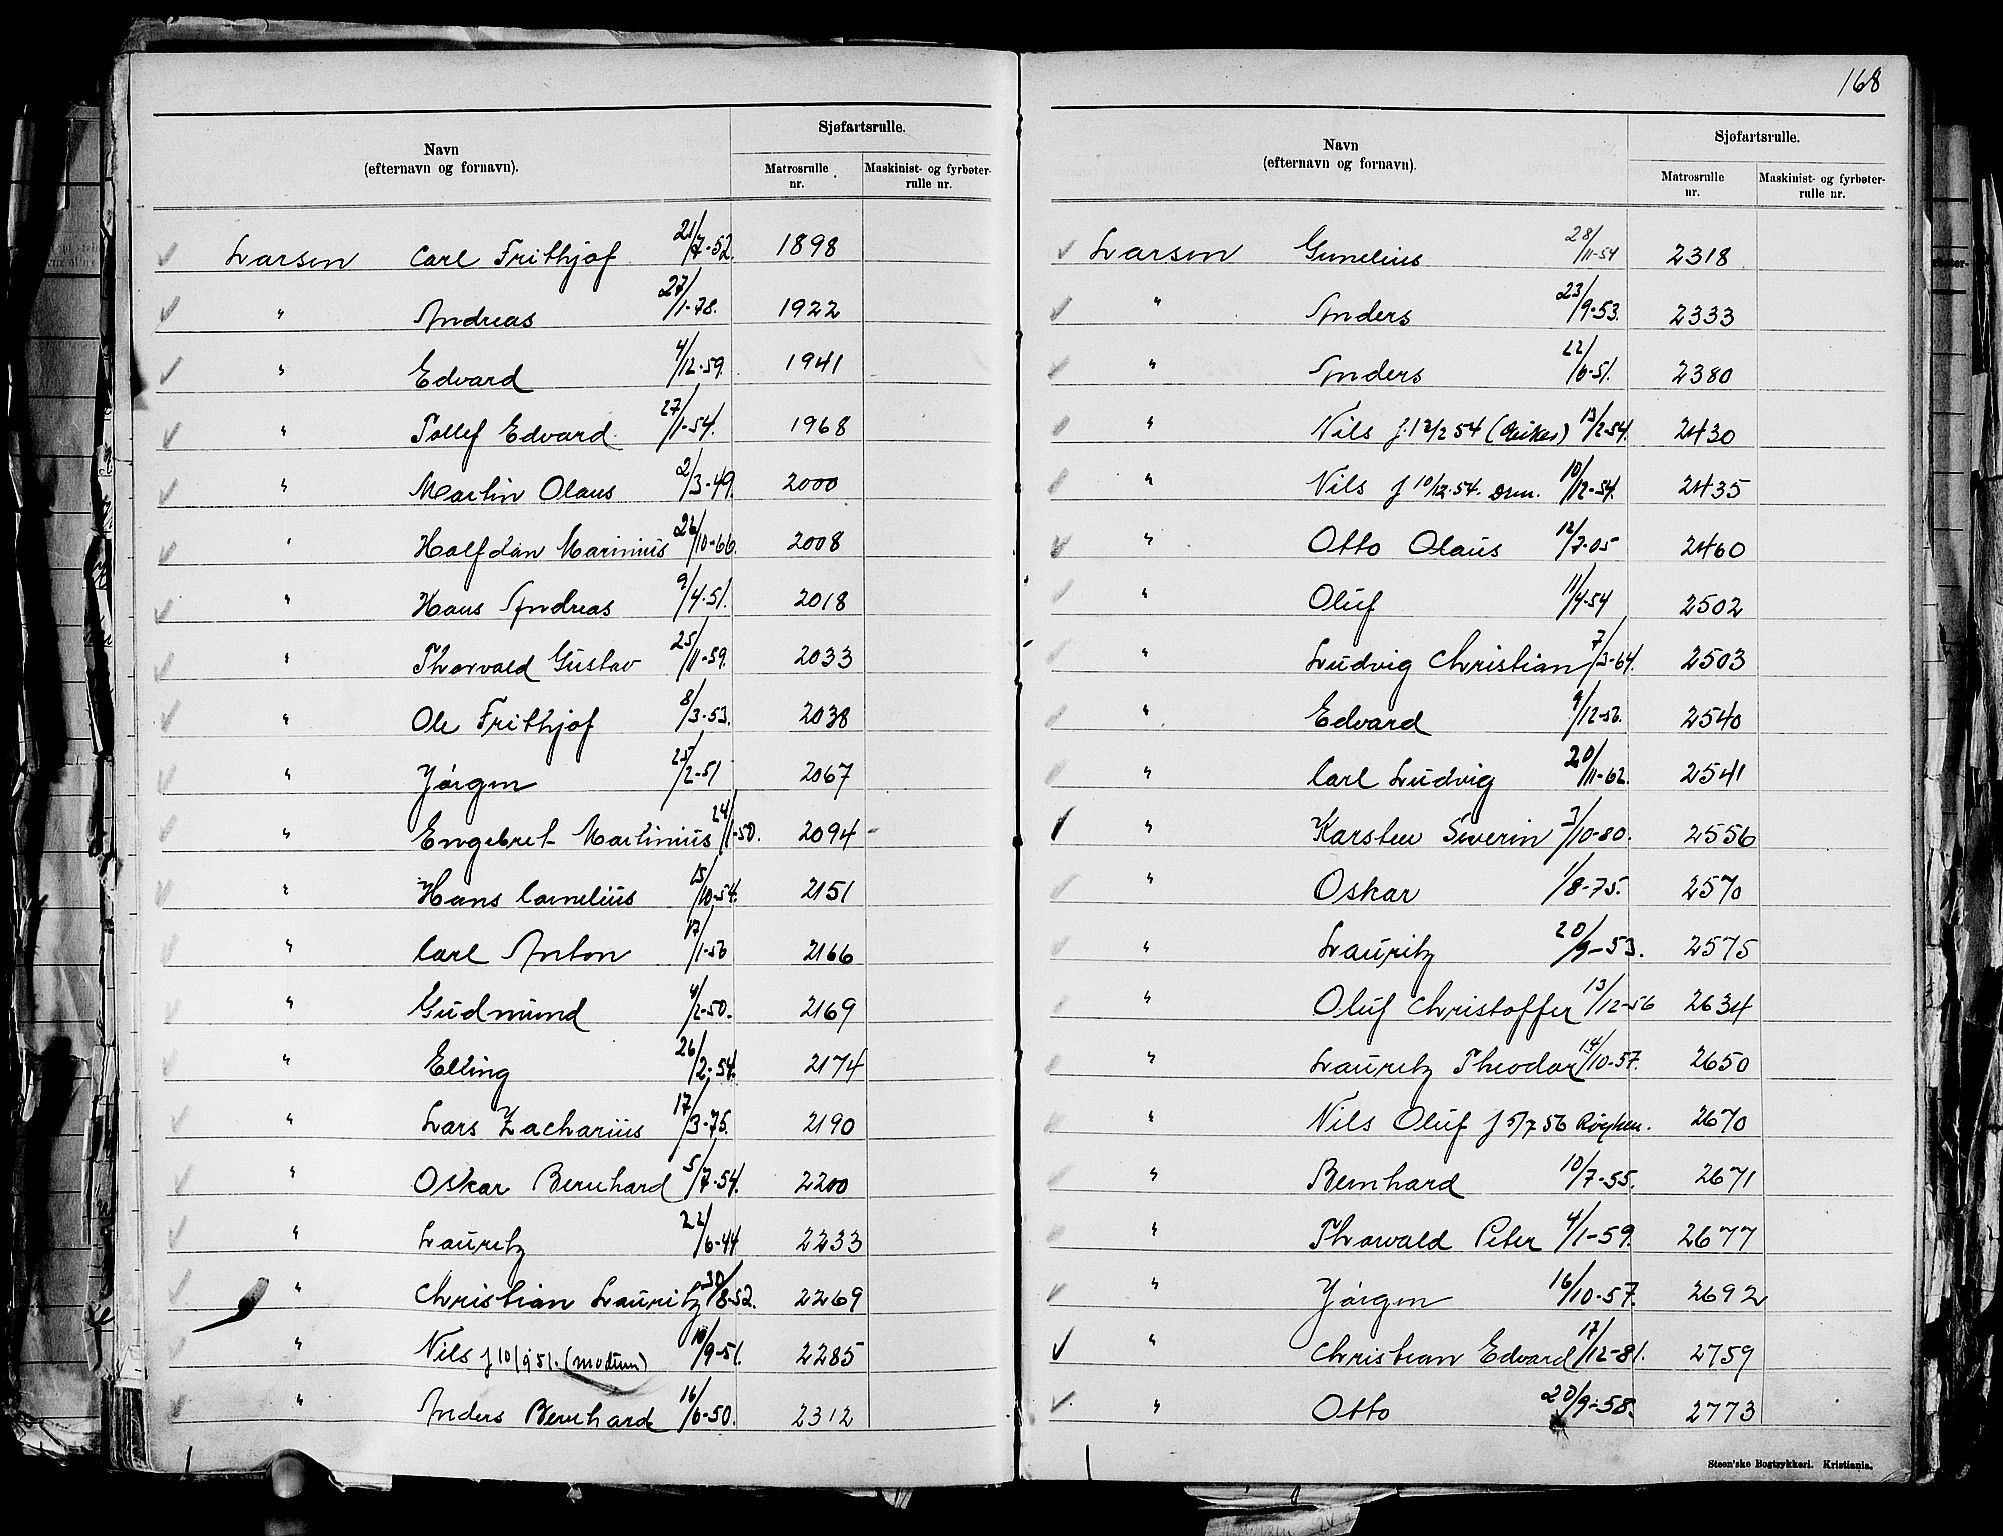 168
Navn
(efternavn og fornavn).
Sjøfartsrulle.
Matrosrulle nr.
Maskinist- og fyrbøter-rulle nr.
Larsen Carl Frithjof 21/7-52. 1898
" Andreas 27/1-78. 1922
" Edvard 4/12-59. 1941
" Tollef Edvard 27/1-54. 1968
" Martin Olaus 2/3-49. 2000
" Halfdan Marinius 26/10-66. 2008
" Hans Andreas 9/4-51. 2018
" Thorvald Gustav 25/11-59. 2033
" Ole Frithjof 8/3-53. 2038
" Jørgen 25/2-51 2067
" Engebret Martinius 24/11-50. 2094-
" Hans Cornelius 15/10-54. 2151
" Carl Anton 17/1-56 2166
" Gudmund 4/2-50. 2169
" Elling 26/2-54. 2174
" Lars Zacharius 17/3-75. 2190
" Oskar Bernhard 5/7-54. 2200
" Lauritz 22/6-44 2233
" Christian Lauritz 30/8-52. 2269
" Nils f 10/9 51. (Modum) 10/9-51. 2285
" Anders Bernhard 16/6-50. 2312
Navn
(efternavn og fornavn).
Sjøfartsrulle.
Matrosrulle nr.
Maskinist- og fyrbøter-rulle nr.
Larsen Gunelius 28/11-54 2318
" Anders 23/9-53. 2333
" Anders 22/6-51. 2380
" Nils f. 13/2 54 13/2-54. 2430
" Nils f 10/12-54. Drm. 10/12-54. 2435
" Otto Olaus 12/7-05 2460
" Oluf 11/4-54 2502
" Ludvig Christian 7/3-64. 2503
" Edvard 9/12-56. 2540
" Carl Ludvig 20/11-62. 2541
" Karsten Severin 3/10-80. 2556
" Oskar 1/8-75. 2570
" Lauritz 20/9-53. 2575
" Oluf Christoffer 13/12-56 2634
" Lauritz Theodor 14/10-57. 2650
" Nils Oluf f 5/7 56 Røyken. 2670
" Bernhard 10/7-55. 2671
" Thorvald Peter 4/1-59. 2677
" Jørgen 16/10-57. 2692
" Christian Edvard 17/12-81. 2759
" Otto 20/9-58. 2773
Steen'ske Bogtrykkeri. Kristiania.